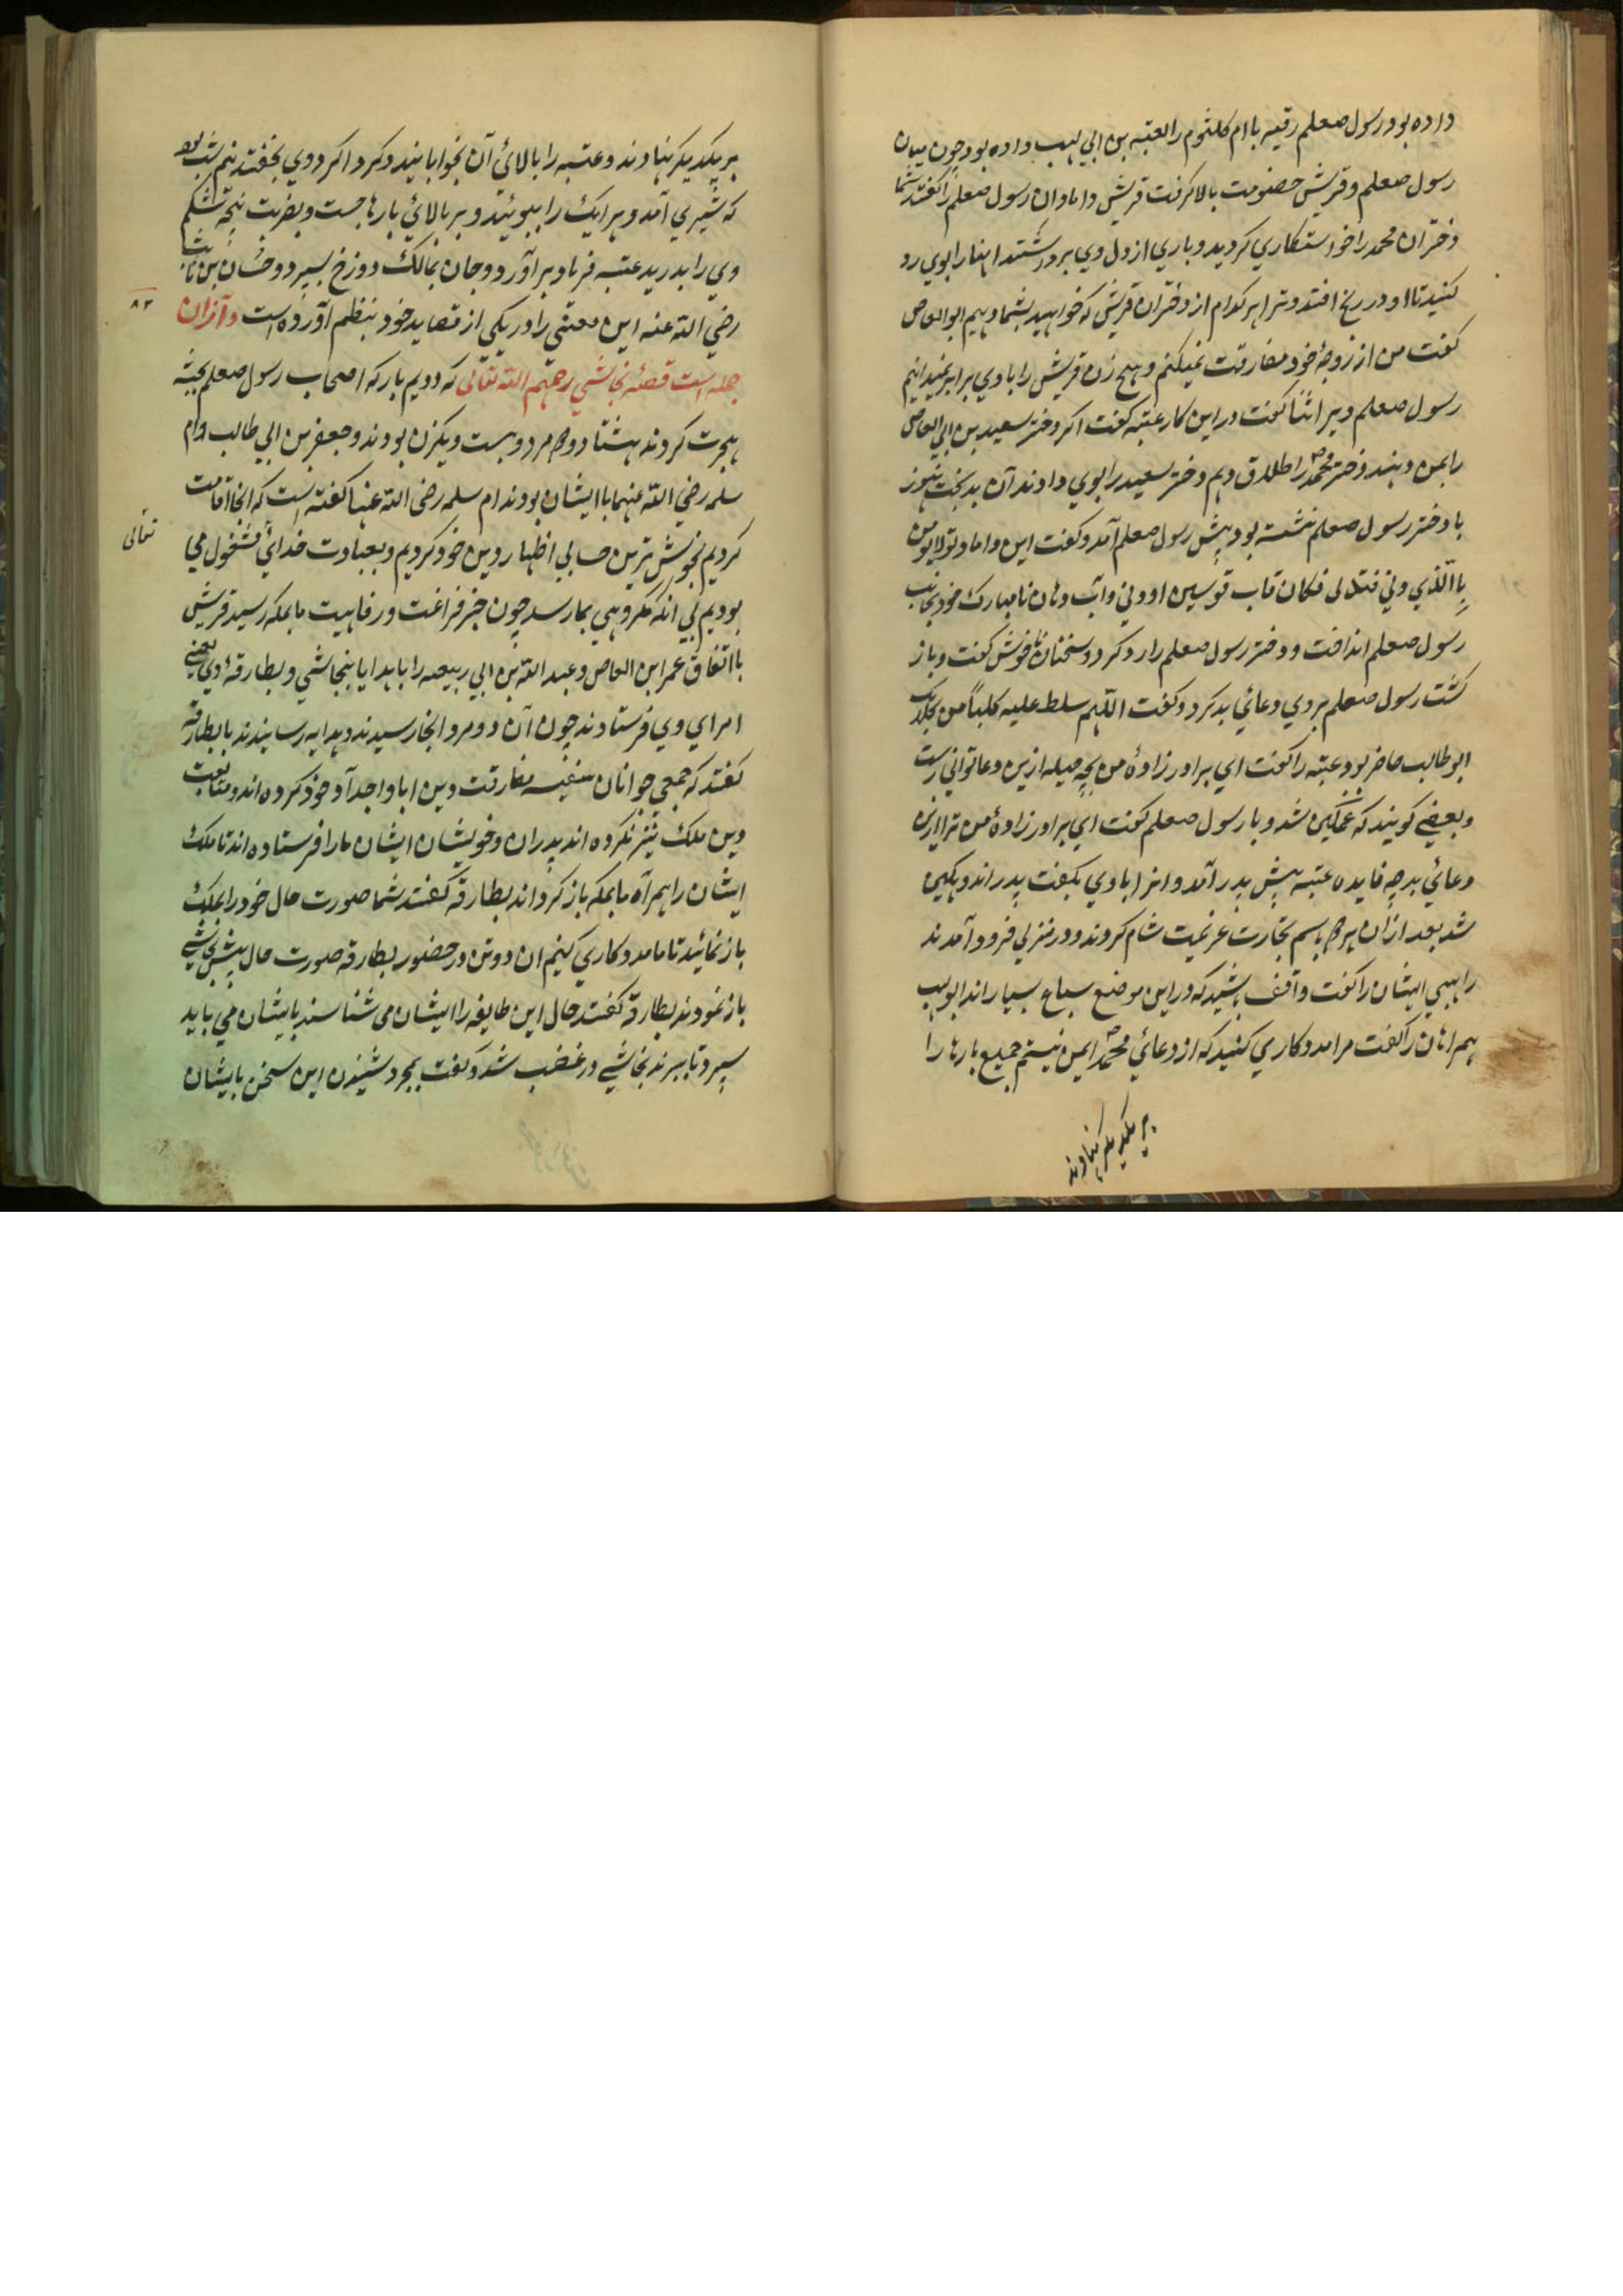 داده بود و رسول صعلم رقیه با ام کلثوم را لعتبه بن ابی لهب داده بود چون میان
رسول صعلم و قریش خصومت بالا گرفت قریش دامادان رسول صعلم را گفتند شما
دختران محمد را خواستکاري کردید و باري از دل وي برداشتند اینها را بوي رد
کنید تا او در رنج افتد و ترا هر کدام از دختران قریش که خواهید بشما دهیم ابو العاص
گفت من از زوجۀ خود مفارقت نمیکنم و هیچ زن قریش را با وي برابر نمیدانیم
رسول صعلم ویرا ثنا گفت در این کار عتبه گفت اگر دختر سعید بن ابي العاص
را بمن دهند دختر محمد را طلاق دهم دختر سعید را بوي دادند آن بدبخت هنوز
با دختر رسول صعلم ننشسته بود پیش رسول صعلم آمد و گفت این داماد تو لا یومن
بِاالّذي دني فتدلى فکان قاب قوسین او ودني وآب دهان نامبارک خود بجانب
رسول صعلم انداخت و دختر رسول صعلم را رد کرد و سخنان ناخوش گفت و باز
گشت رسول صعلم بر وي دعائي بد کرد و گفت اللّهم سلط علیه کلباً من کلابک
ابو طالب حاضر بود عتبه را گفت اي برادر زادۀ من بچه حیله ازین دعا تواني رست
و بعضي گویند که غمگین شد و با رسول صعلم گفت اي برادر زادۀ من ترا ازین
دعائي بد چه فایده عتبه پیش پدر آمد و انرا با وي بگفت پدر اندوهگین
شد بعد از آن هر دو باسم تجارت عزیمت شام کردند و در منزلي فرود آمدند
راهبي ایشان را گفت واقف باشید که در این موضع سباع بسیار اند ابو لهب
همراهان را گفت مرا مددکاري کنید که از دعائي محمد ایمن نیستم جمیع بارها را
بر یکدیگر نهادند
بر یکدیگر نهادند و عتبه را بالائ آن بخوابانیدند و گرداگرد وي بخفتند نیم شب بود
که شیري آمد و هر ایک را ببوئید و بر بالائ بارها جست و بضربت پنجه شکم
وي را بدرید عتبه فریاد برآورد و جان بمالک دوزخ بسپرد و حسّان بن ثابت
رضي اللّه عنه این معني را در یکي از قصاید خود بنظم آورده است و از ان
۸۳
جمله است قصۀ نجاشي رحمهم اللّه تعالی که دویم بار که اصحاب رسول صعلم بحبشه
هجرت کردند هشتاد و دو مرد و بیست و یکزن بودند و جعفر بن ابي طالب و ام
سلمه رضي اللّه عنهما با ایشان بودند ام سلمه رضي اللّه عنها گفته است که انجا اقامت
کردیم بخوش ترین حالي اظهار دین خود کردیم و بعبادت خدائ مشغول مي
تعالی
بودیم بي انکه مکروهي بما رسد چون خبر فراغت و رفاهیت ما بمکه رسید قریش
با اتفاق عمر ابن العاص و عبد اللّه بن ابي ربیعه را با هدایا بنجاشي و بطارقۀ وي یعني
امراي وي فرستادند چون آن دو مرد انجا رسیدند و هدایه رسانیدند با بطارقه
گفتند که جمعي جوانان سفیه مفارقت دین ابا و اجداد خود کرده اند و متابعت
دین ملک نیز نکرده اند پدران و خویشان ایشان ما را فرستاده اند تا ملک
ایشان را همراه ما بمکه باز گرداند بطارقه گفتند شما صورت حال خود را بملک
باز نمائید تا ما مددکاري کنیم ان دو تن در حضور بطارقه صورت حال پیش نجاشي
باز نمودند بطارقه گفتند حال این طایفه را ایشان می شناسند بایشان می باید
سپرد تا ببرند نجاشي در غضب شد و گفت بمجرد شنیدن این سخن بایشان